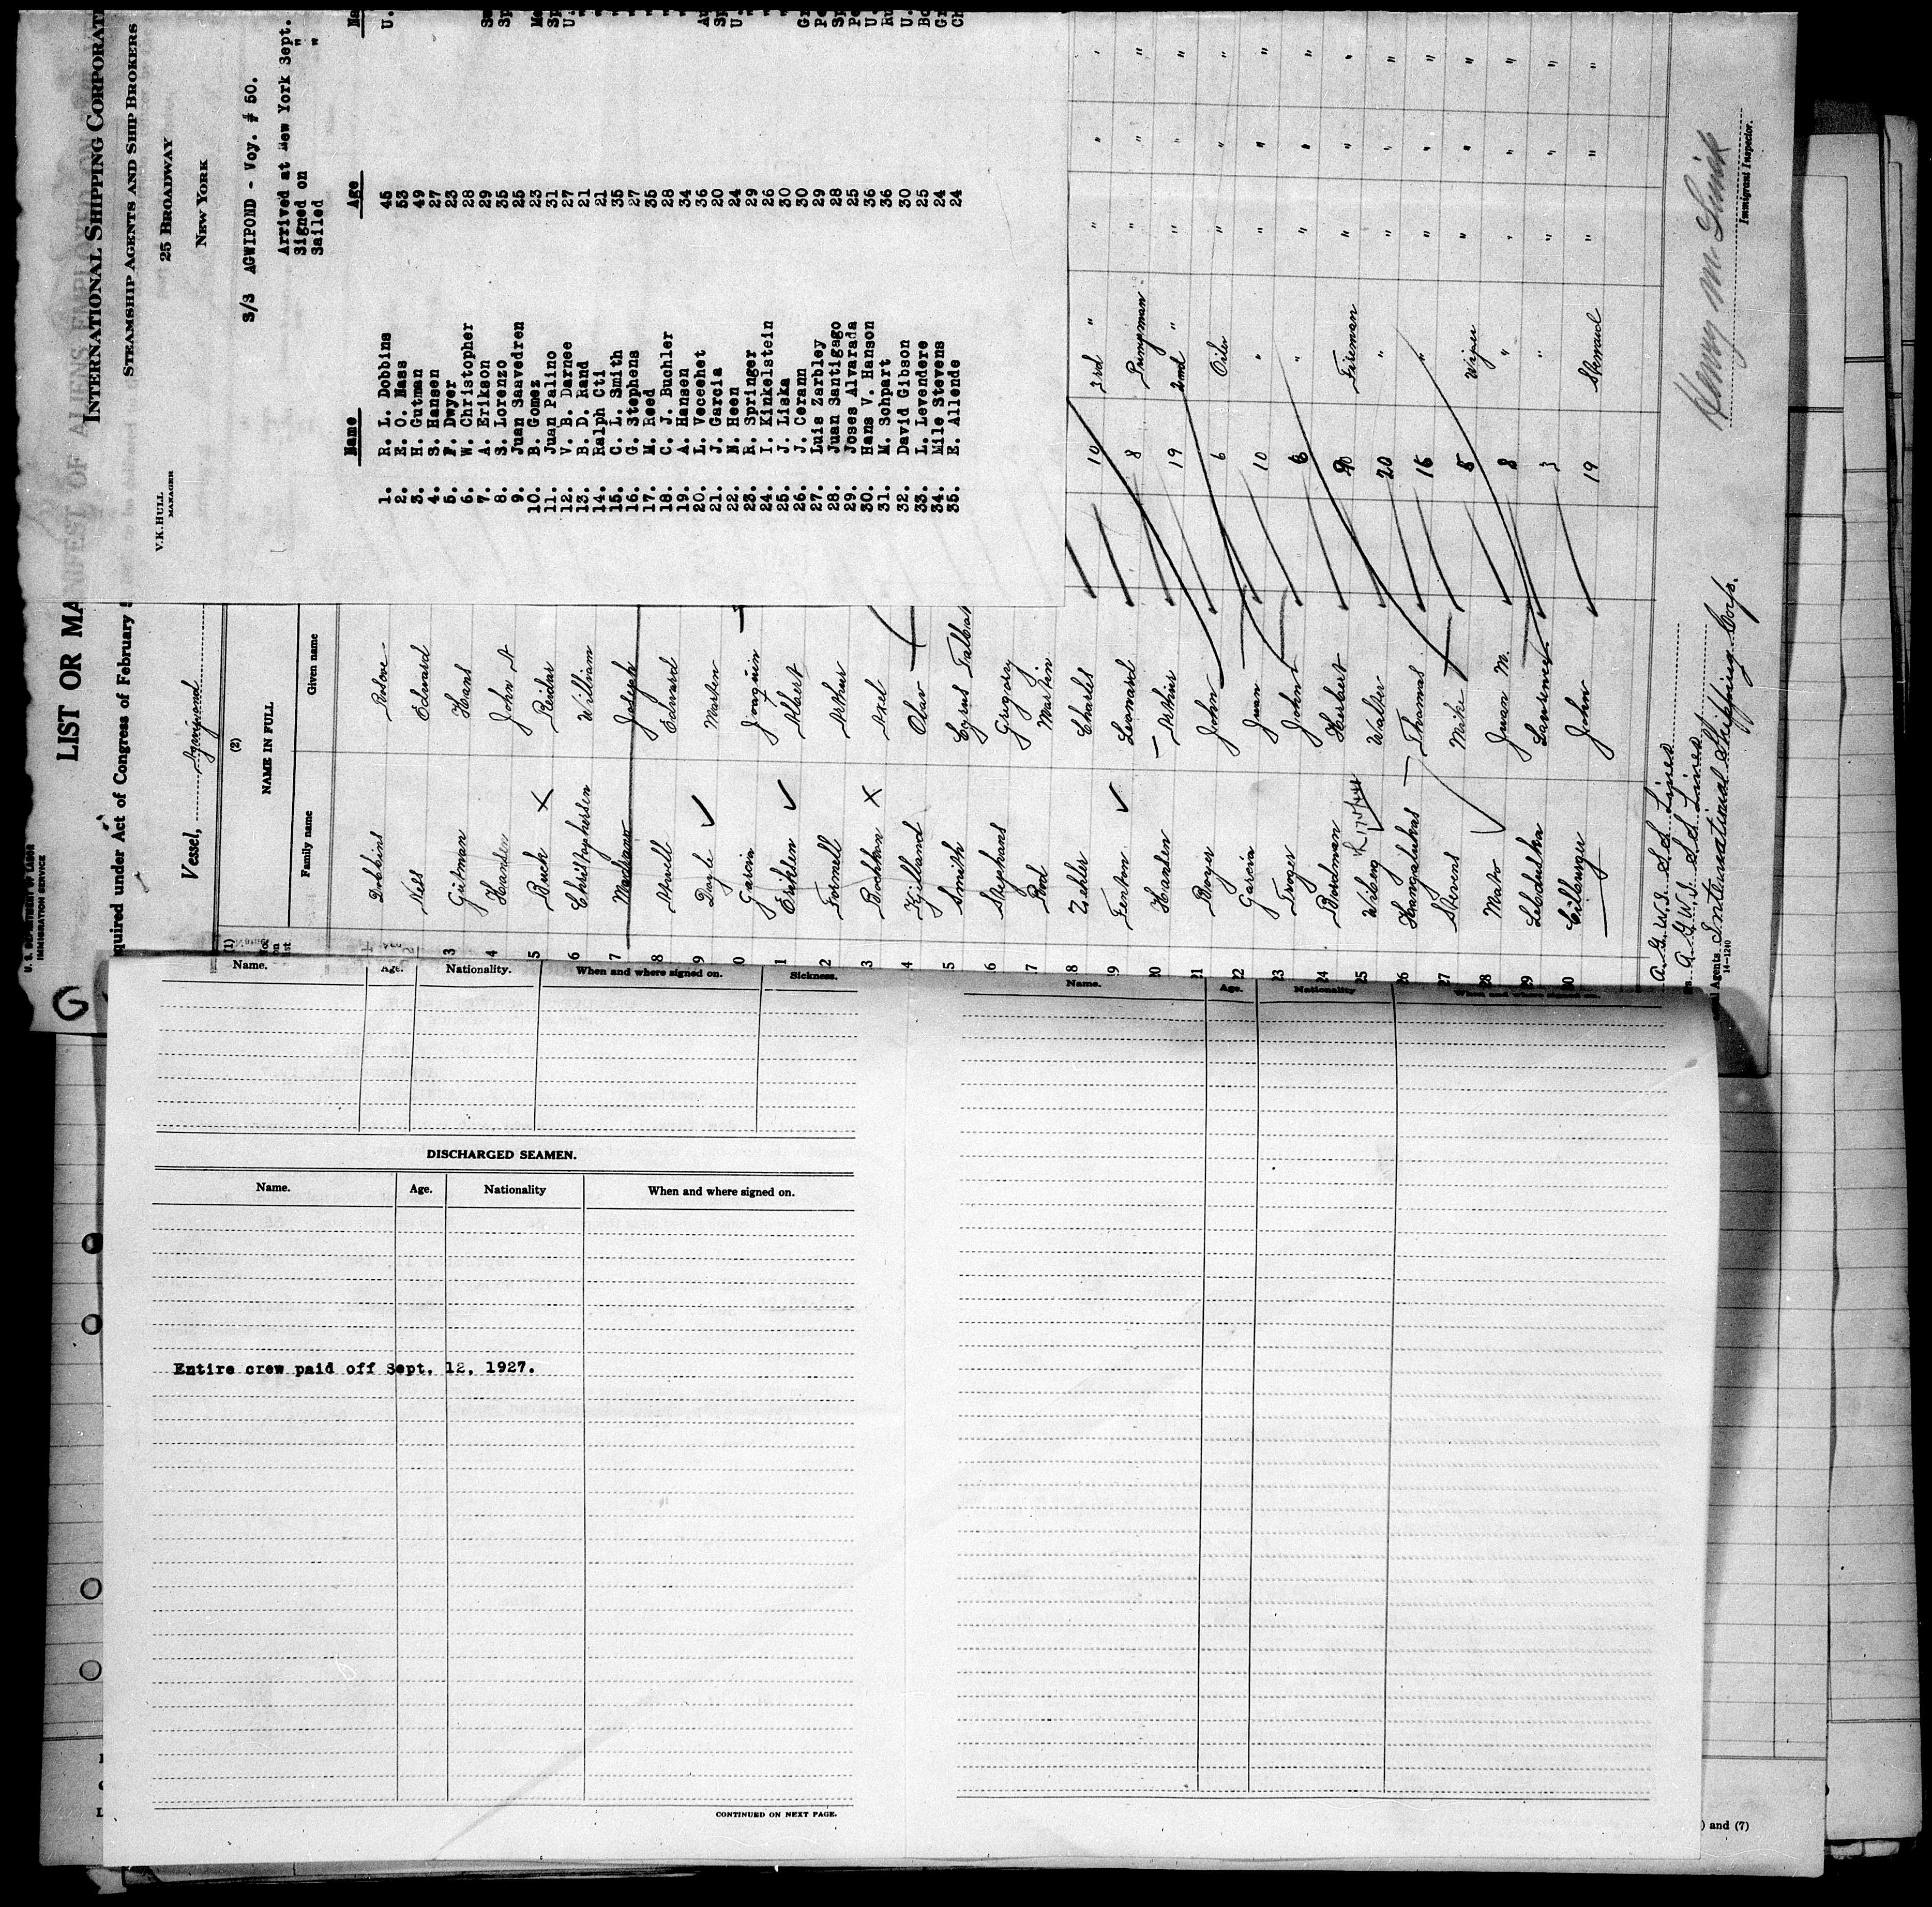 INTERNATIONAL SHIPPING CORPORAT
STEAMSHIP AGENTS AND SHIP BROKERS
25 BROADWAY
NEW YORK
V.K.HULL
MANAGER
S/S AGWIPOND - Voy. # 50.
Arrived at New York Sept.
Signed on "
Sailed "
Name Age Na
1. R. L. Dobbins 45 U.
2. E. O. Nass 53
3. H. Gutman 49
4. S. Hansen 27
5. F. Dwyer 23
6. W. Christopher 28
7. A. Erikson 29
8. S. Lorenzo 35 Sp
9. Juan Saavedren 25
10. B. Gomez 23 Me
11. Juan Palino 31 Sp
12. V. B. Darnee 27 U.
13. B. D. Rand 21
14. Ralph Cti 21
15. C. L. Smith 35
16. G. Stephens 27
17. M. Reed 35
18. C. J. Buchler 28
19. A. Hansen 34
20. L. Veceehet 36
21. J. Garcia 20 Sp
22. N. Heen 24 U.
23. R. Springer 29
24. I. Kinkelstein 26
25. J. Liska 30
26. J. Cerann 30 Gr
27. Luis Zarbley 29 Pe
28. Juan Santigago 28 Sp
29. Joses Alvarada 25 Pe
30. Hans V. Hanson 36 U.
31. M. Schpart 36 Ru
32. David Gibson 30 U.
33. L. Levendere 25
34. Mile Stevens 24 Gr
35. E. Allende 24 Ch
U. S. DEPARTMENT OF LABOR
IMMIGRATION SERVICE
LIST OR MA
quired under Act of Congress of February
Vessel, Agwipond
(1) (2)
NAME IN FULL
Family name Given name
Dobbins
Edward
3 Gutman Hans
4 John A
5 Buck X Reidar
6 Christophersen William
7 Joseph
8 Edward
9 Doyle ✓ Morten
0 Garcia Joaquin
1 Eriksen ✓ Albert
2 Arthur
3 X Axel
4 Olav
5 Smith Cyrus Talbot
6 Stephens Gregory
7 Martin
8 Charles 10 3rd "
9 Fenton ✓ Leonard 8 Pumpman
20 Arthur 19 2nd "
21 Boyer John 6 Oiler
22 Garcia Juan 10 "
23 John 6 "
24 Bordman Herbert Fireman
25 Walter 20 "
26 Thomas "
27 Stevens Mike Wiper
28 Mato Juan M. 8 "
29 3 "
30 John 19 Steward
A.G.W.I. S.S. Lines
A.G.W.I. S.S. Lines
Agents International Shipping Corp.
14-1240
Immigrant Inspector.
G
Name. Age. Nationality. When and where signed on. Sickness.
Name. Age. Nationality When and where signed on.
DISCHARGED SEAMEN.
Name. Age. Nationality When and where signed on.
Entire crew paid off Sept. 12, 1927.
CONTINUED ON NEXT PAGE.
) and (7)